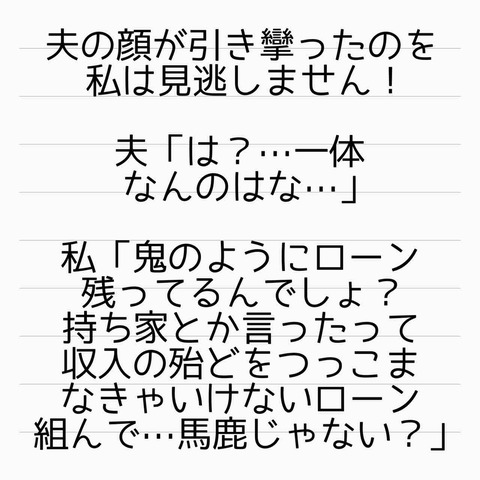 夫の顔が引き攣ったのを
私は見逃しません！
夫「は？…一体
なんのはな…」
私「鬼のようにローン
残ってるんでしょ？
持ち家とか言ったって
収入の殆どをつっこま
なきゃいけないローン
組んで…馬鹿じゃない？」